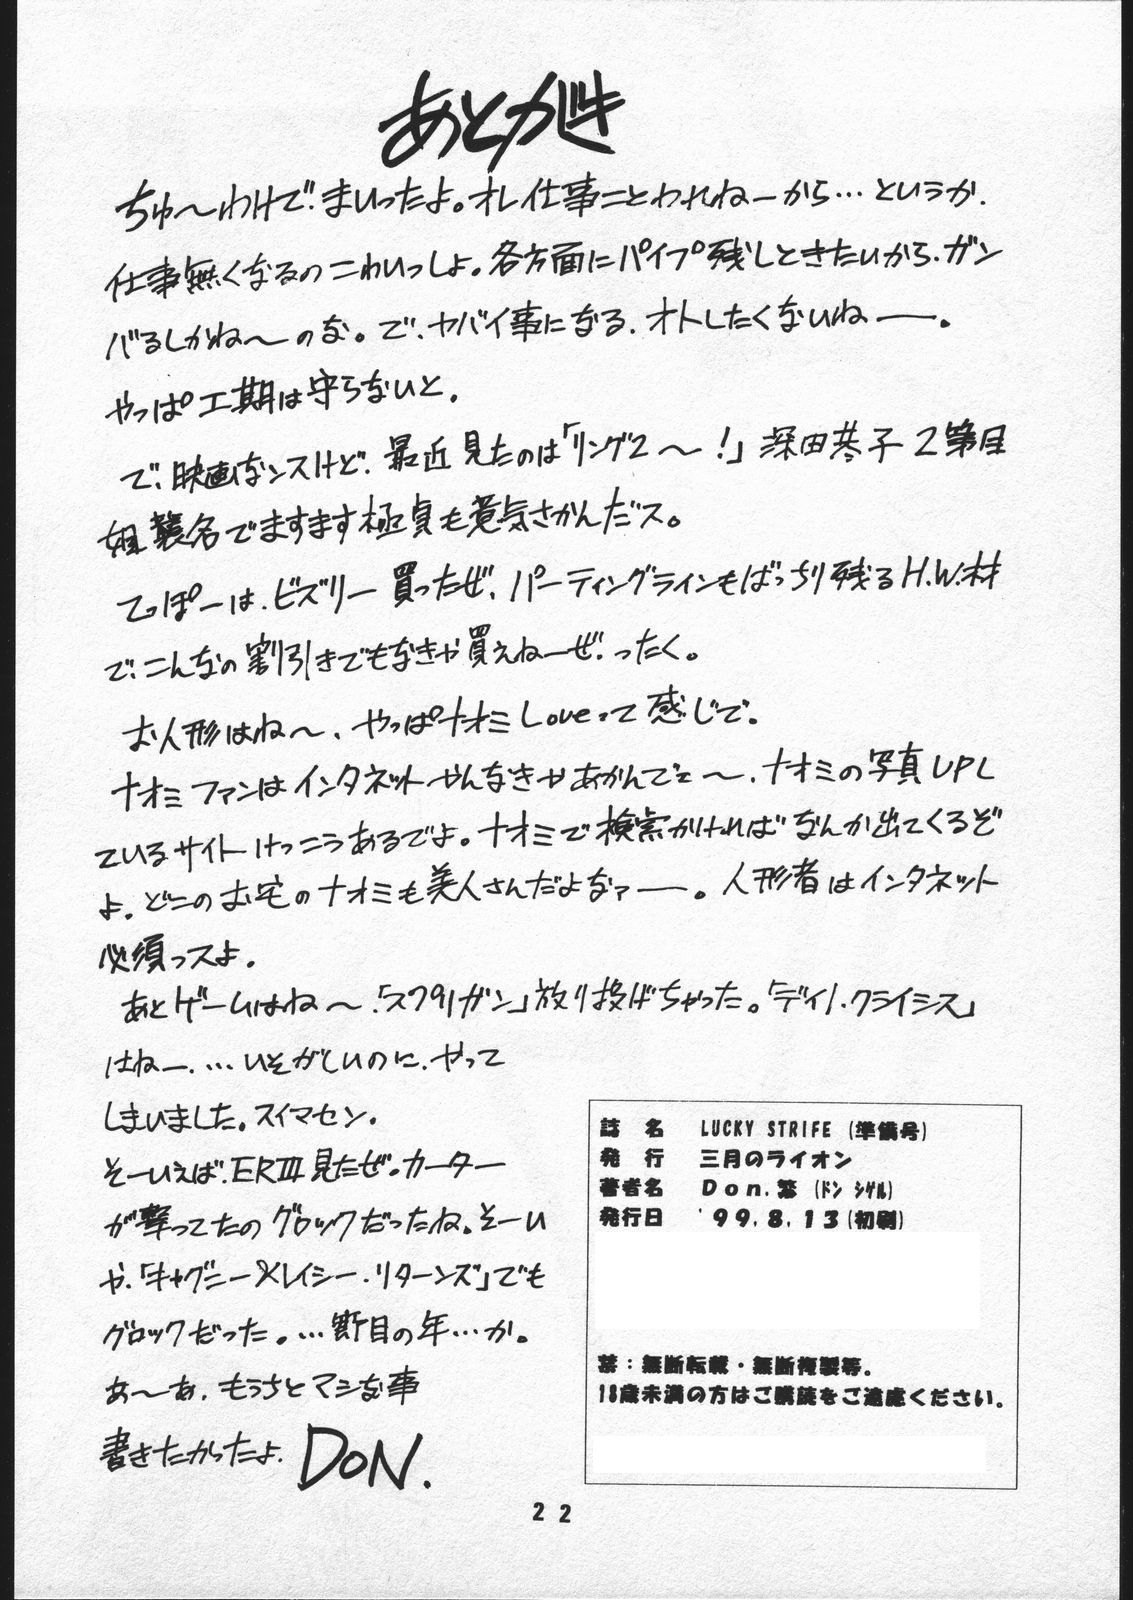 あとがき
ちゅ～わけで、まいったよ。オレ仕事ことわれねーから…というか、
仕事無くなるのこわいっしょ。各方面にパイプ残しときたいから、ガン
バるしかね～のな。で、ヤバイ事になる、オトしたくないねー。
やっぱ工期は守らないと。
で、映画なンスけど、最近見たのは「リング2～!」深田恭子2第目
襲名でますます極貞も意気さかんだス。
てっぽーは、ビズリー買ったぜ、パーティングラインもばっちり残るH.W.材
で、こんなの割引きでもなきゃ買えねーぜ、ったく。
お人形はね～、やっぱナオミLoveって感じで。
ナオミファンはインタネットやんなきゃあかんでェ～、ナオミの写真UPし
ているサイトけっこうあるでよ。ナオミで検索かければなんか出てくるぞ
よ。どこのお宅のナオミも美人さんだよなァー。人形者はインタネット
必須っスよ。
あとゲームはね～、「スプリガン」放り投げちゃった。「ディノ・クライシス」
はねー、…いそがしいのに、やって
しまいました。スイマセン。
そーいえば、ERIII見たぜ。カーター
が撃ってたのグロックだったね。そーい
や、「キャグニー&レイシー・リターンズ」でも
グロックだった。…節目の年…か。
あ～あ、もうちとマシな事
書きたかったよ、DON.
誌 名 LUCKY STRIFE (準備号)
発 行 三月のライオン
著者名 Don.繁 (ドン シゲル)
発行日 '99.8.13(初刷)
禁:無断転載・無断複製等.
18歳未満の方はご購読をご遠慮ください.
22